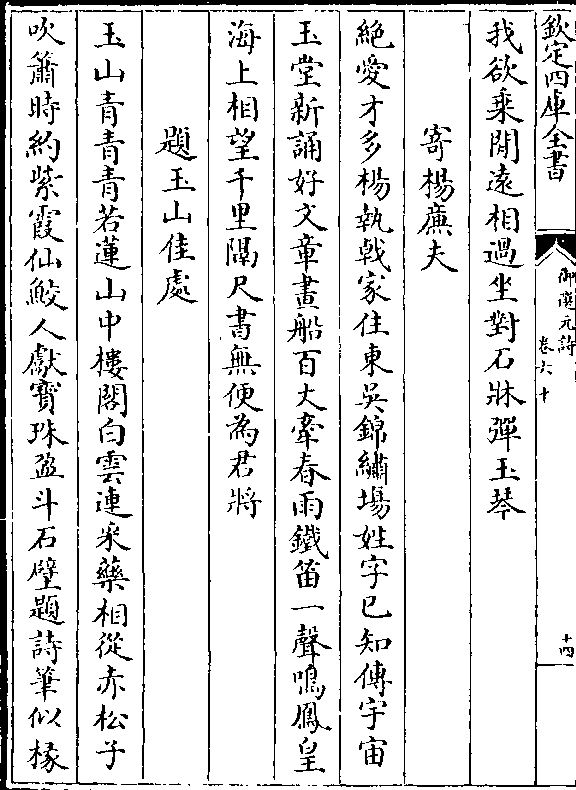 欽定四庫全書
御選元詩
卷六十
十四
我欲乗閒遠相過坐對石牀彈玉琴
寄楊廉夫
絶愛才多楊執戟家住東吳錦繡塲姓字已知傳宇宙
玉堂新誦好文章畫船百丈牽春雨鐵笛一聲鳴鳳皇
海上相望千里隔尺書無便為君將
題玉山佳處
玉山青青青若蓮山中樓閣白雲連采藥相從赤松子
吹簫時約紫霞仙鮫人獻寳珠盈斗石壁題詩筆似椽